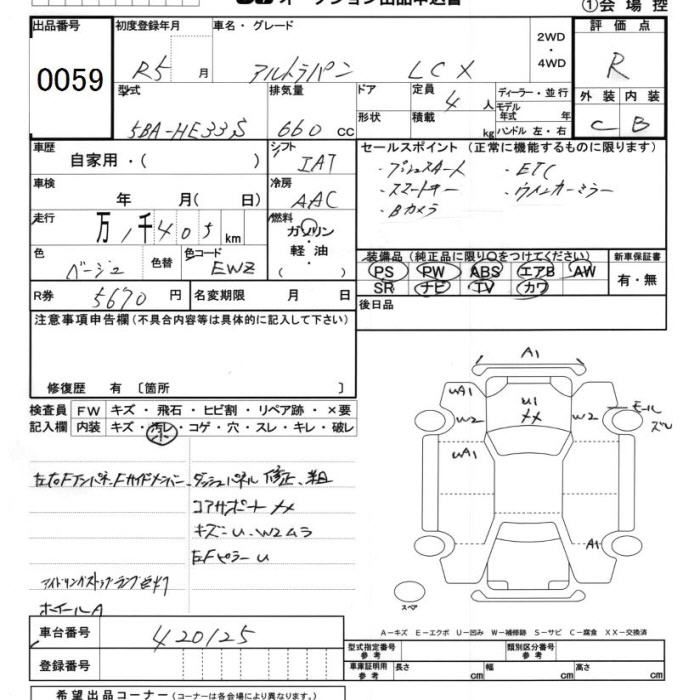 オークション出品申込書
①会場控
出品番号
0059
初度登録年月
R5 月
車名・グレード
アルトラパン LCX
2WD
・
4WD
評価点
R
外装 内装
C B
型式
5BA-HE33S
排気量
660 cc
ドア
形状
定員 4 人
積載 kg
ディーラー・並行
モデル年式 年
ハンドル 左・右
車歴
自家用・( )
シフト
IAT
セールスポイント (正常に機能するものに限ります)
・プッシュスタート ・ETC
・スマートキー ・ウインカーミラー
・Bカメラ
車検
年 月( 日)
冷房
AAC
走行
万 1千405 km
燃料
ガソリン
軽油
( ・ )
色
ベージュ
色替
色コード
EWZ
装備品 (純正品に限り○をつけてください)
PS PW ABS エアB AW
SR ナビ TV カワ
新車保証書
有・無
R券 5670 円
名変期限 月 日
後日品
注意事項申告欄 (不具合内容等は具体的に記入して下さい)
修復歴 有 〔箇所 〕
検査員
記入欄
FW キズ・飛石・ヒビ割・リペア跡・×要
内装 キズ・汚レ・コゲ・穴・スレ・キレ・破レ
左右Fインパネ、Fサイドメンバー、ダッシュパネル 修正、押
コアサポート XX
キズ=U、W2ムラ
左Fピラー U
アイドリングストップランプ点灯
ホイールA
A1
UA1
U1
XX
W2
W2
モール
ズレ
UA1
A1
スペア
A-キズ E-エクボ U-凹み W-補修跡 S-サビ C-腐食 XX-交換済
車台番号
420125
登録番号
型式指定番号
参考
類別区分番号
参考
車庫証明用
参考
長さ cm 幅 cm 高さ cm
希望出品コーナー (コーナーは各会場により異なります。)